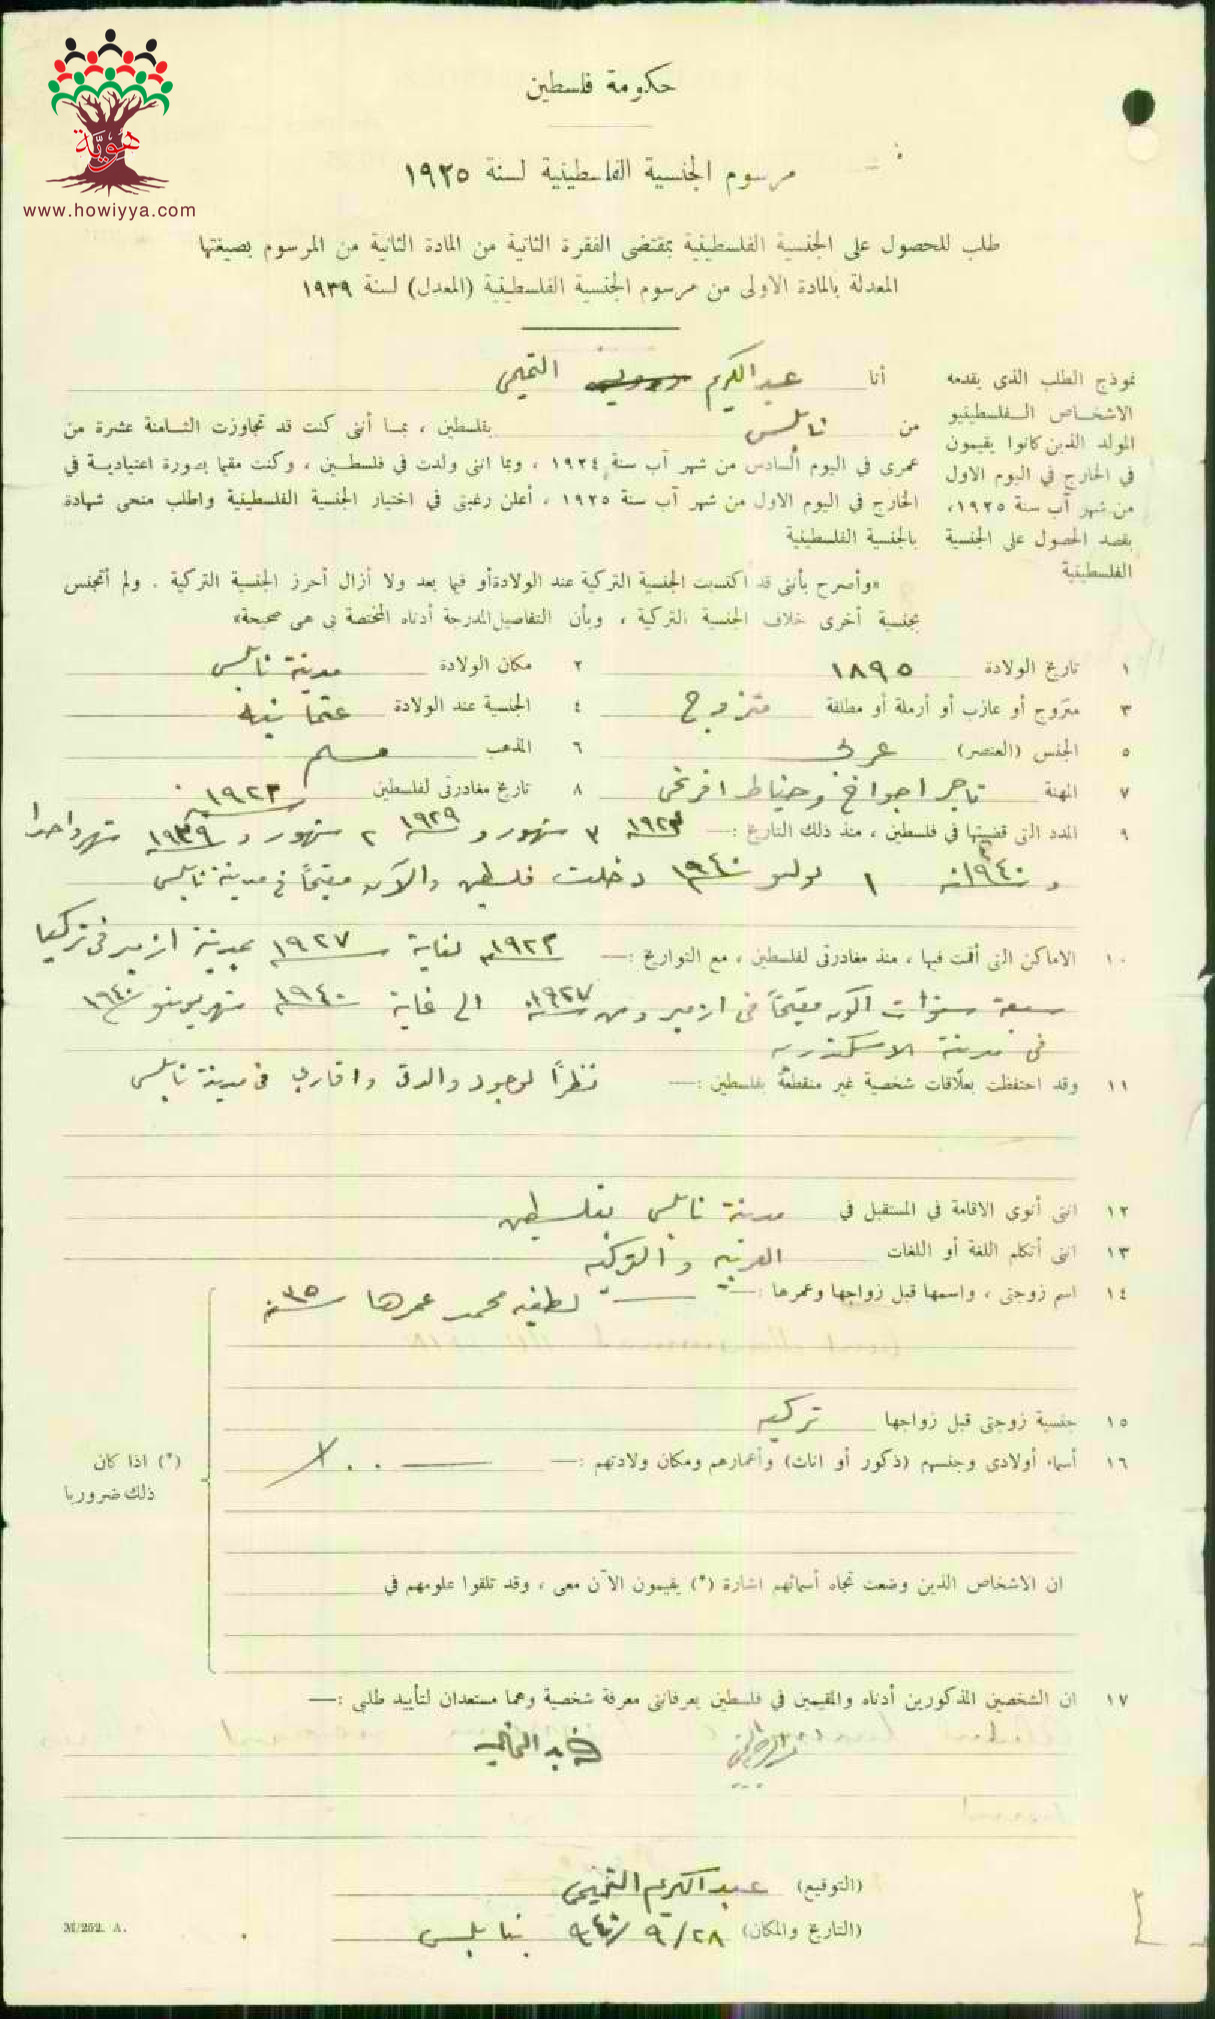 هوية
www.howiyya.com
حكومة فلسطين
مرسوم الجنسية الفلسطينية لسنة ١٩٢٥
طلب للحصول على الجنسية الفلسطينية بمقتضى الفقرة الثانية من المادة الثانية من المرسوم بصيغتها
المعدلة بالمادة الاولى من مرسوم الجنسية الفلسطينية (المعدل) لسنة ١٩٣٩
نموذج الطلب الذى يقدمه
الاشخاص الفلسطينيو
المولد الذين كانوا يقيمون
في الخارج في اليوم الاول
من شهر آب سنة ١٩٢٥،
بقصد الحصول على الجنسية
الفلسطينية
أنا عبد الكريم التميمي
من نابلس بفلسطين ، بما أنى كنت قد تجاوزت الثامنة عشرة من
عمرى في اليوم السادس من شهر آب سنة ١٩٢٤ ، وبما انى ولدت في فلسطين ، وكنت مقيما بصورة اعتيادية في
الخارج في اليوم الاول من شهر آب سنة ١٩٢٥ ، أعلن رغبتى في اختيار الجنسية الفلسطينية واطلب منحى شهادة
بالجنسية الفلسطينية
«وأصرح بأنى قد اكتسبت الجنسية التركية عند الولادة أو فيما بعد ولا أزال أحرز الجنسية التركية . ولم أتجنس
بجنسية أخرى خلاف الجنسية التركية ، وبأن التفاصيل المدرجة أدناه المختصة بى هى صحيحة»
١ تاريخ الولادة ١٨٩٥ ٢ مكان الولادة مدينة نابلس
٣ متزوج أو عازب أو أرملة أو مطلقة متزوج ٤ الجنسية عند الولادة عثمانيه
٥ الجنس (العنصر) عربي ٦ المذهب مسلم
٧ المهنة تاجر اجواخ وخياط افرنجي ٨ تاريخ مغادرتى لفلسطين ١٩٢٣
٩ المدد التى قضيتها في فلسطين ، منذ ذلك التاريخ :— ١٩٢٣ ٣ شهور و ١٩٢٩ ٢ شهور و ١٩٣٩ شهر واحدا
و ١٩٤٠ ١ يوليو ١٩٤٠ دخلت فلسطين والآن مقيماً في مدينة نابلس
١٠ الاماكن التى أقمت فيها ، منذ مغادرتى لفلسطين ، مع التواريخ :— ١٩٢٢ لغاية ١٩٢٧ بمدينة ازمير في تركيا
سبعة سنوات اكون مقيماً في ازمير ومن ١٩٢٧ الى غاية ١٩٤٠ شهر يونيو
في مدينة الاسكندريه
١١ وقد احتفظت بعلاقات شخصية غير منقطعة بفلسطين :— نظراً لوجود والدتي واقاربي في مدينة نابلس
١٢ انى أنوى الاقامة في المستقبل في مدينة نابلس بفلسطين
١٣ انى أتكلم اللغة أو اللغات العربيه والتركيه
١٤ اسم زوجتى ، واسمها قبل زواجها وعمرها :— لطفيه محمد عمرها ٣٥ سنه
١٥ جنسية زوجتى قبل زواجها تركيه
١٦ أسماء أولادى وجنسهم (ذكور أو اناث) وأعمارهم ومكان ولادتهم :— لا
(*) اذا كان
ذلك ضروريا
ان الاشخاص الذين وضعت تجاه أسمائهم اشارة (*) يقيمون الآن معى ، وقد تلقوا علومهم في
١٧ ان الشخصين المذكورين أدناه والمقيمين في فلسطين يعرفانى معرفة شخصية وهما مستعدان لتأييد طلبى :—
(التوقيع) عبد الكريم التميمي
(التاريخ والمكان) ٢٨/٩/٩٤٠ بنابلس
M/252. A.